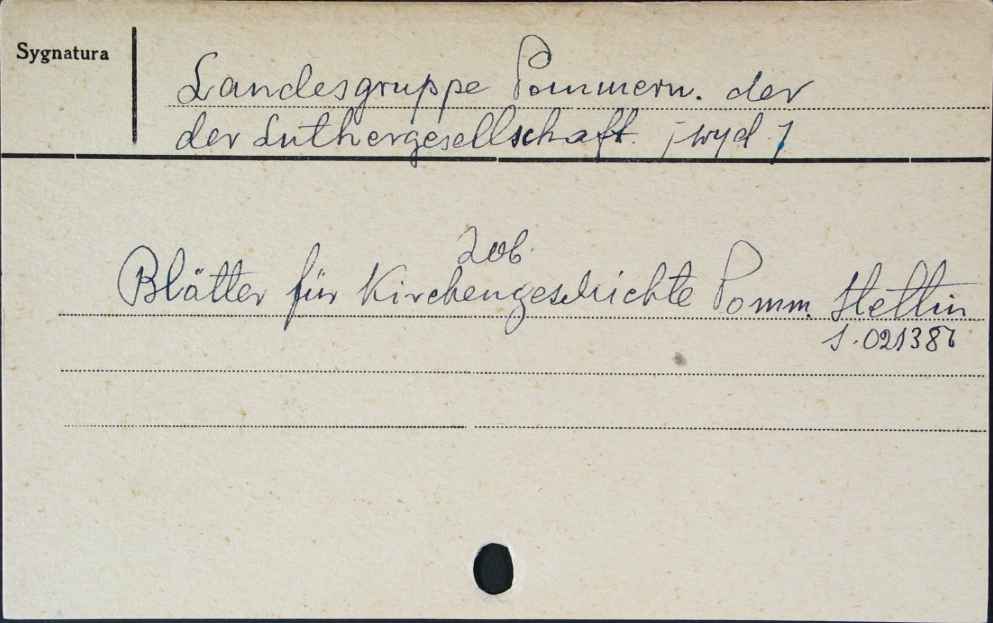 Sygnatura
Landesgruppe Pommern. der
der Luthergesellschaft. [wyd.]
Zob.
Blätter für Kirchengeschichte Pomm. Stettin
S.021386